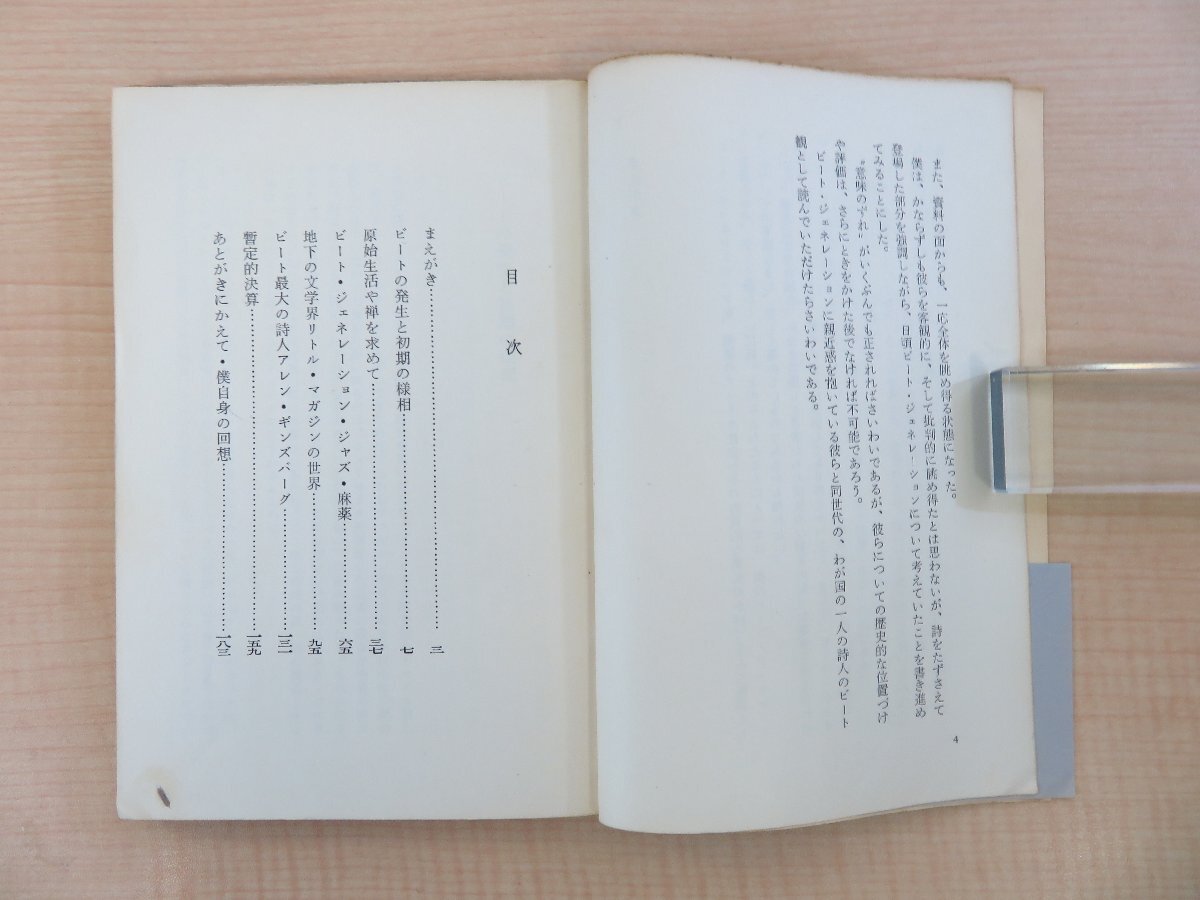 また、資料の面からも、一応全体を眺め得る状態になった。
僕は、かならずしも彼らを客観的に、そして批判的に眺め得たとは思わないが、詩をたずさえて
登場した部分を強調しながら、日頃ビート・ジェネレーションについて考えていたことを書き進め
てみることにした。
〝意味のずれ〟がいくぶんでも正されればさいわいであるが、彼らについての歴史的な位置づけ
や評価は、さらにときをかけた後でなければ不可能であろう。
ビート・ジェネレーションに親近感を抱いている彼らと同世代の、わが国の一人の詩人のビート
観として読んでいただけたらさいわいである。
4
目次
まえがき……………………三
ビートの発生と初期の様相……………………七
原始生活や禅を求めて……………………三七
ビート・ジェネレーション・ジャズ・麻薬……………………六五
地下の文学界リトル・マガジンの世界……………………九五
ビート最大の詩人アレン・ギンズバーグ……………………一三一
暫定的決算……………………一五九
あとがきにかえて・僕自身の回想……………………一八三